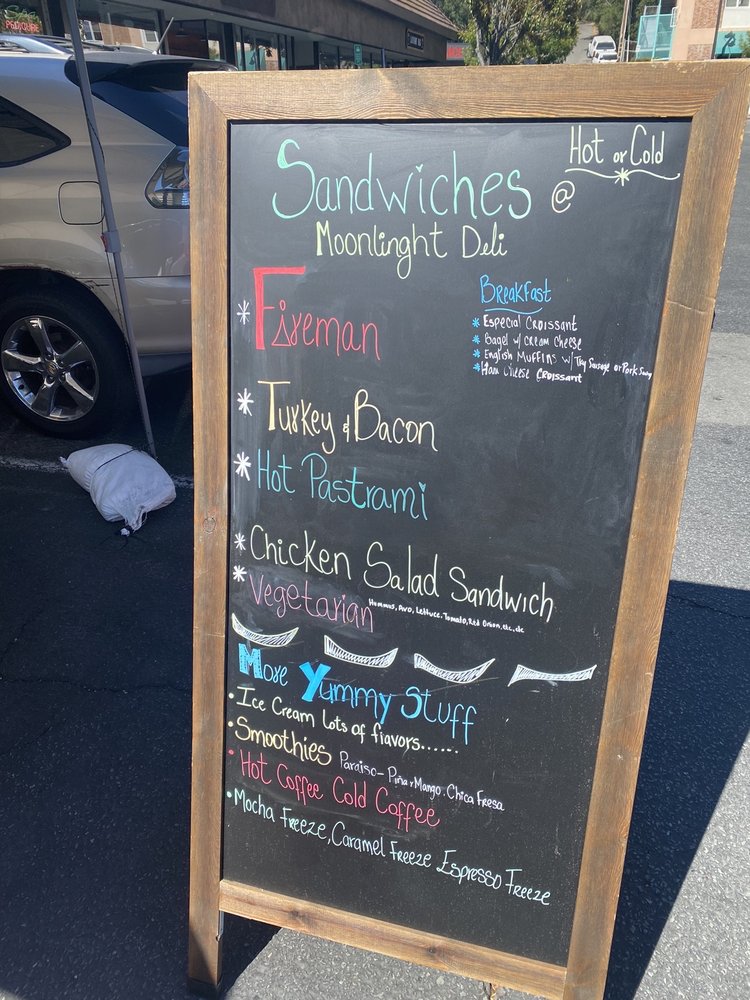 Hot or Cold
Sandwiches @
Moonlinght Deli
* Fireman
Breakfast
* Especial Croissant
* Bagel w/ cream cheese
* English Muffins w/ Tky Sausage or Pork
* Ham Cheese Croissant
* Turkey & Bacon
* Hot Pastrami
* Chicken Salad Sandwich
* Vegetarian Hummus, Avo, Lettuce, Tomato, Red Onion, etc, etc
More Yummy Stuff
• Ice Cream Lots of flavors......
• Smoothies Paraiso - Piña y Mango. Chica Fresa
• Hot Coffee Cold Coffee
• Mocha Freeze, Caramel Freeze Espresso Freeze